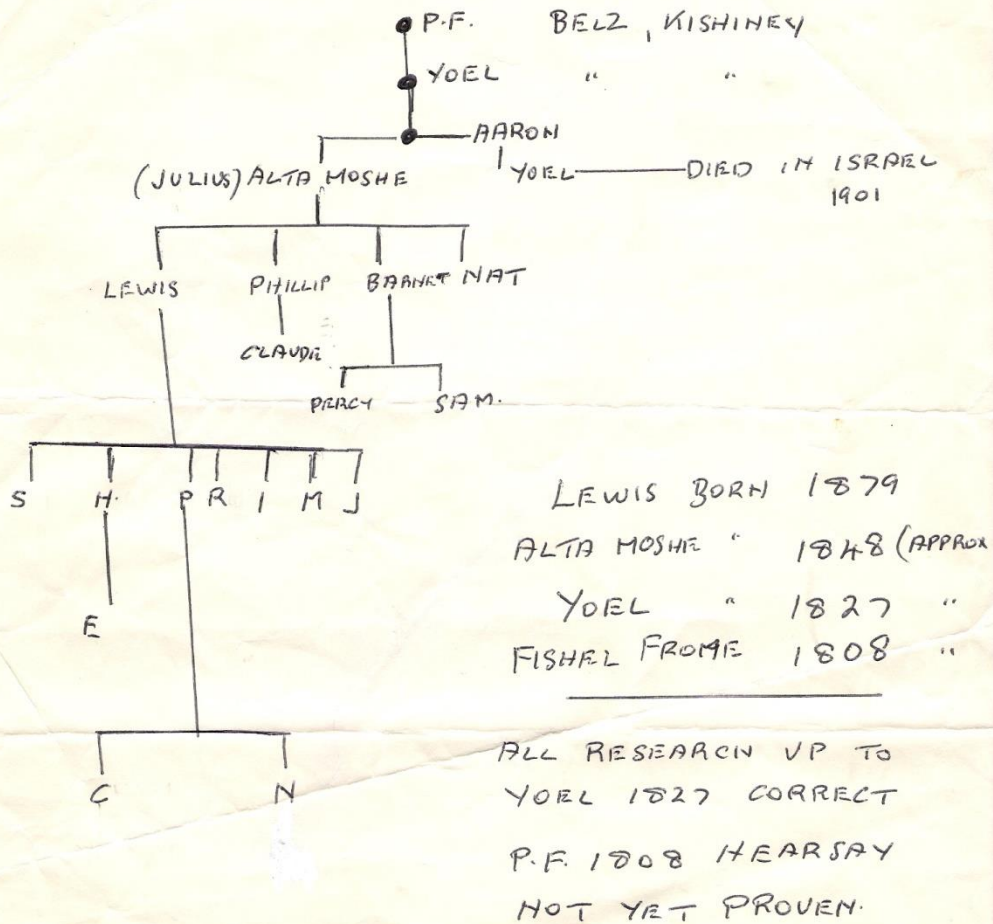 P.F. BELZ, KISHINEV
YOEL " "
AARON
(JULIUS) ALTA MOSHE
YOEL DIED IN ISRAEL
1901
LEWIS PHILLIP BARNET NAT
CLAUDE
PERCY SAM.
S H. P R I M J
E
C N
LEWIS BORN 1879
ALTA MOSHE " 1848 (APPROX
YOEL " 1827 "
FISHEL FROME 1808 "
ALL RESEARCH UP TO
YOEL 1827 CORRECT
P.F. 1808 HEARSAY
NOT YET PROVEN.